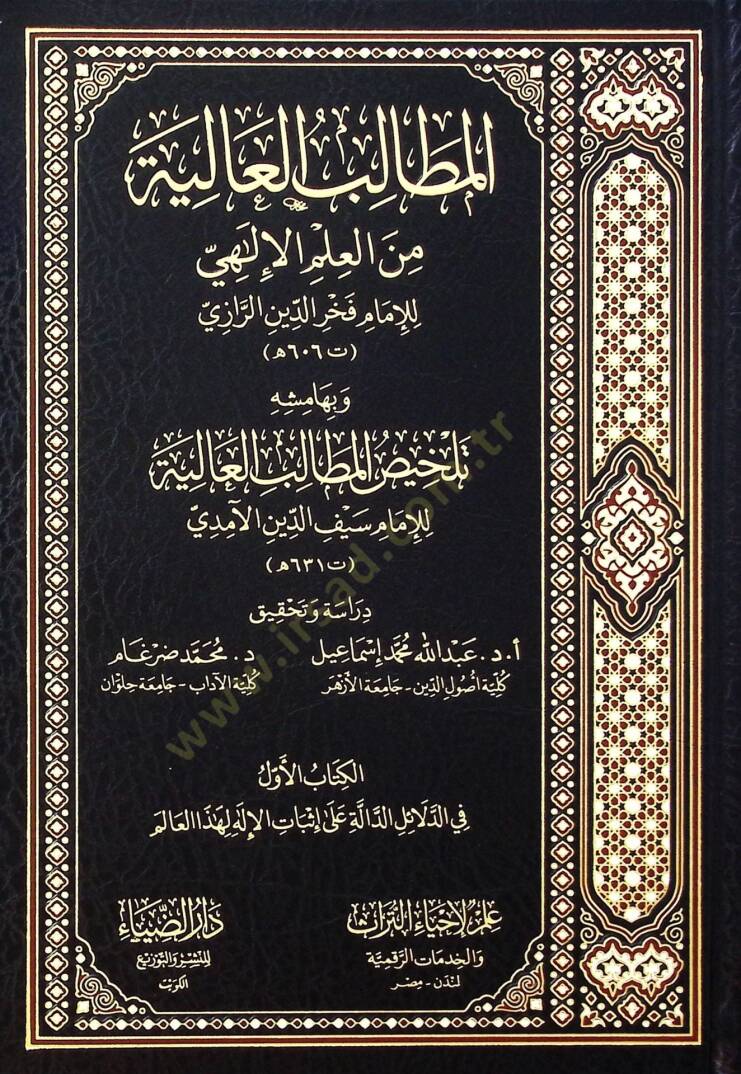 المَطَالِبُ العَالِيَة
مِنَ العِلْمِ الإِلٰهِيّ
لِلإِمَامِ فَخْرِ الدِّينِ الرَّازِيّ
(ت ٦٠٦هـ)
وَبِهَامِشِهِ
تَلْخِيصُ المَطَالِبِ العَالِيَة
لِلإِمَامِ سَيْفِ الدِّينِ الآمِدِيّ
(ت ٦٣١هـ)
دِرَاسَة وَتَحْقِيق
أ.د. عَبْدالله مُحَمَّد إِسْمَاعِيل
كُلِّيَة أُصُولِ الدِّين - جَامِعَة الأَزْهَر
د. مُحَمَّد ضرغَام
كُلِّيَة الآدَاب - جَامِعَة حلوَان
الكِتَابُ الأَوَّلُ
فِي الدَّلَائِلِ الدَّالَّةِ عَلَى إِثْبَاتِ الإِلٰهِ لِهَذَا العَالَم
عِلْم لإِحْيَاءِ التُّرَاثِ
وَالخِدمَات الرَّقمِيَّة
لندَن - مِصْر
دَارُ الضِّيَاءِ
لِلنَّشْرِ وَالتَّوزِيعِ
الكويت
www.irsad.com.tr